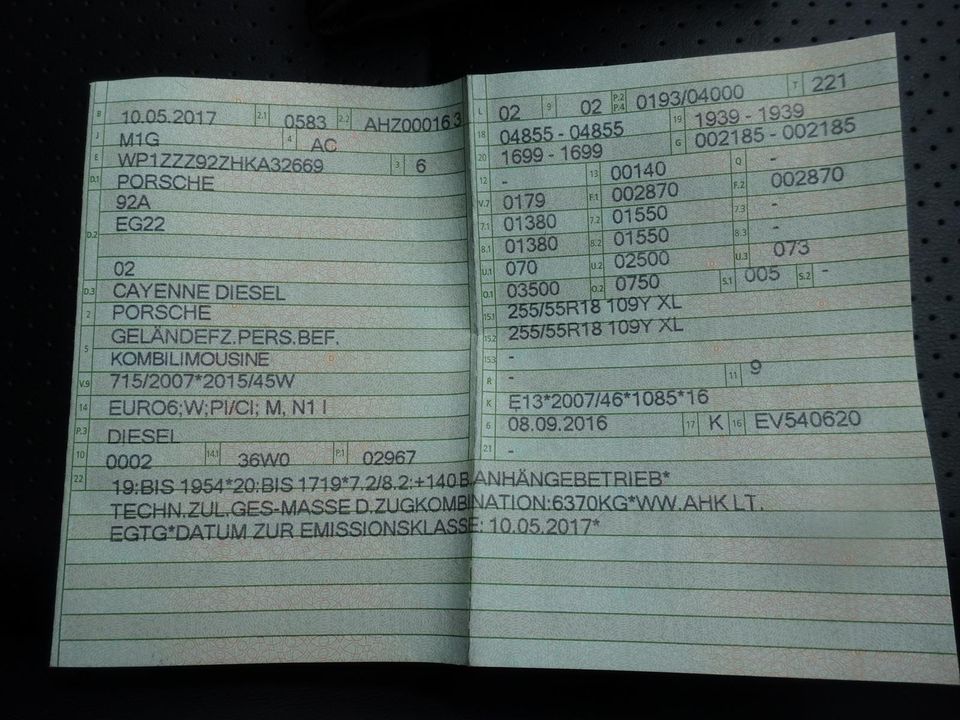 B 10.05.2017 2.1 0583 2.2 AHZ00016 3
J M1G 4 AC
E WP1ZZZ92ZHKA32669 3 6
D.1 PORSCHE
92A
D.2 EG22
02
D.3 CAYENNE DIESEL
2 PORSCHE
5 GELÄNDEFZ.PERS.BEF.
KOMBILIMOUSINE
V.9 715/2007*2015/45W
14 EURO6;W;PI/CI; M, N1 I
P.3 DIESEL
10 0002 14.1 36W0 P.1 02967
L 02 9 02 P.2 P.4 0193/04000 T 221
18 04855 - 04855 19 1939 - 1939
20 1699 - 1699 G 002185 - 002185
12 - 13 00140 Q -
V.7 0179 F.1 002870 F.2 002870
7.1 01380 7.2 01550 7.3 -
8.1 01380 8.2 01550 8.3 -
U.1 070 U.2 02500 U.3 073
O.1 03500 O.2 0750 S.1 005 S.2 -
15.1 255/55R18 109Y XL
15.2 255/55R18 109Y XL
15.3 -
R - 11 9
K E13*2007/46*1085*16
6 08.09.2016 17 K 16 EV540620
21 -
22 19:BIS 1954*20:BIS 1719*7.2/8.2:+140 B.ANHÄNGEBETRIEB*
TECHN.ZUL.GES-MASSE D.ZUGKOMBINATION:6370KG*WW.AHK LT.
EGTG*DATUM ZUR EMISSIONSKLASSE: 10.05.2017*